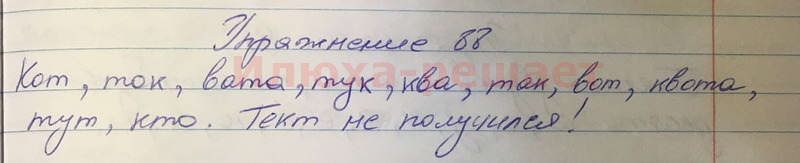 Упражнение 88
Илюха-решает
Кот, ток, вата, тук, ква, так, вот, квота,
тут, кто. Тект не получился!